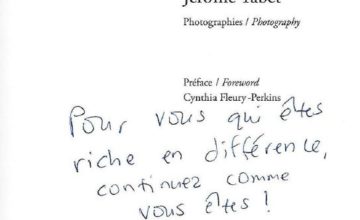 Jérôme Tabet
Photographies / Photography
Préface / Foreword
Cynthia Fleury-Perkins
Pour vous qui êtes
riche en différence,
continuez comme
vous êtes !